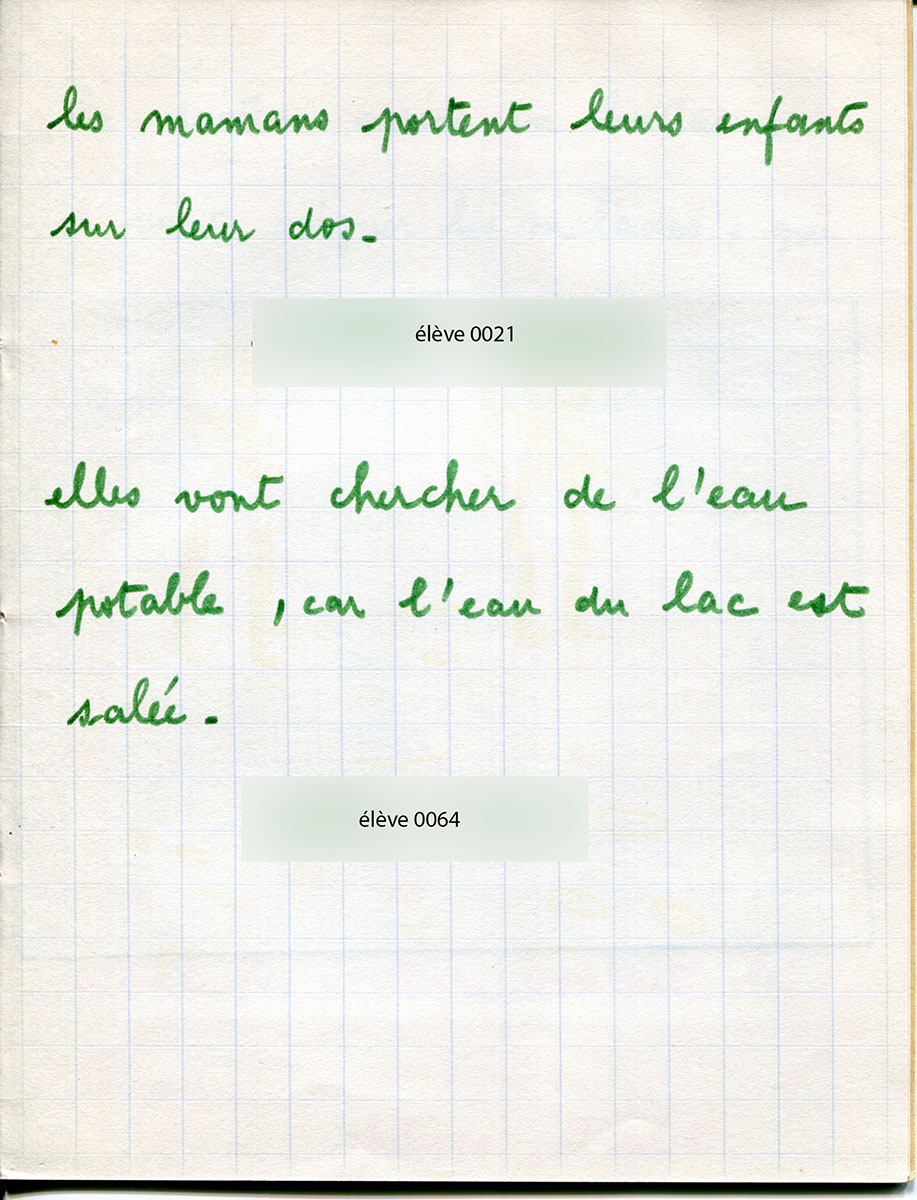 les mamans portent leurs enfants
sur leur dos.
élève 0021
elles vont chercher de l'eau
potable , car l'eau du lac est
salée.
élève 0064